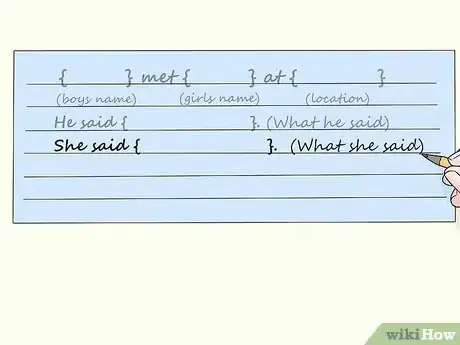 { } met { } at { }
(boys name) (girls name) (location)
He said { }. (What he said)
She said { }. (What she said)
wikiHow